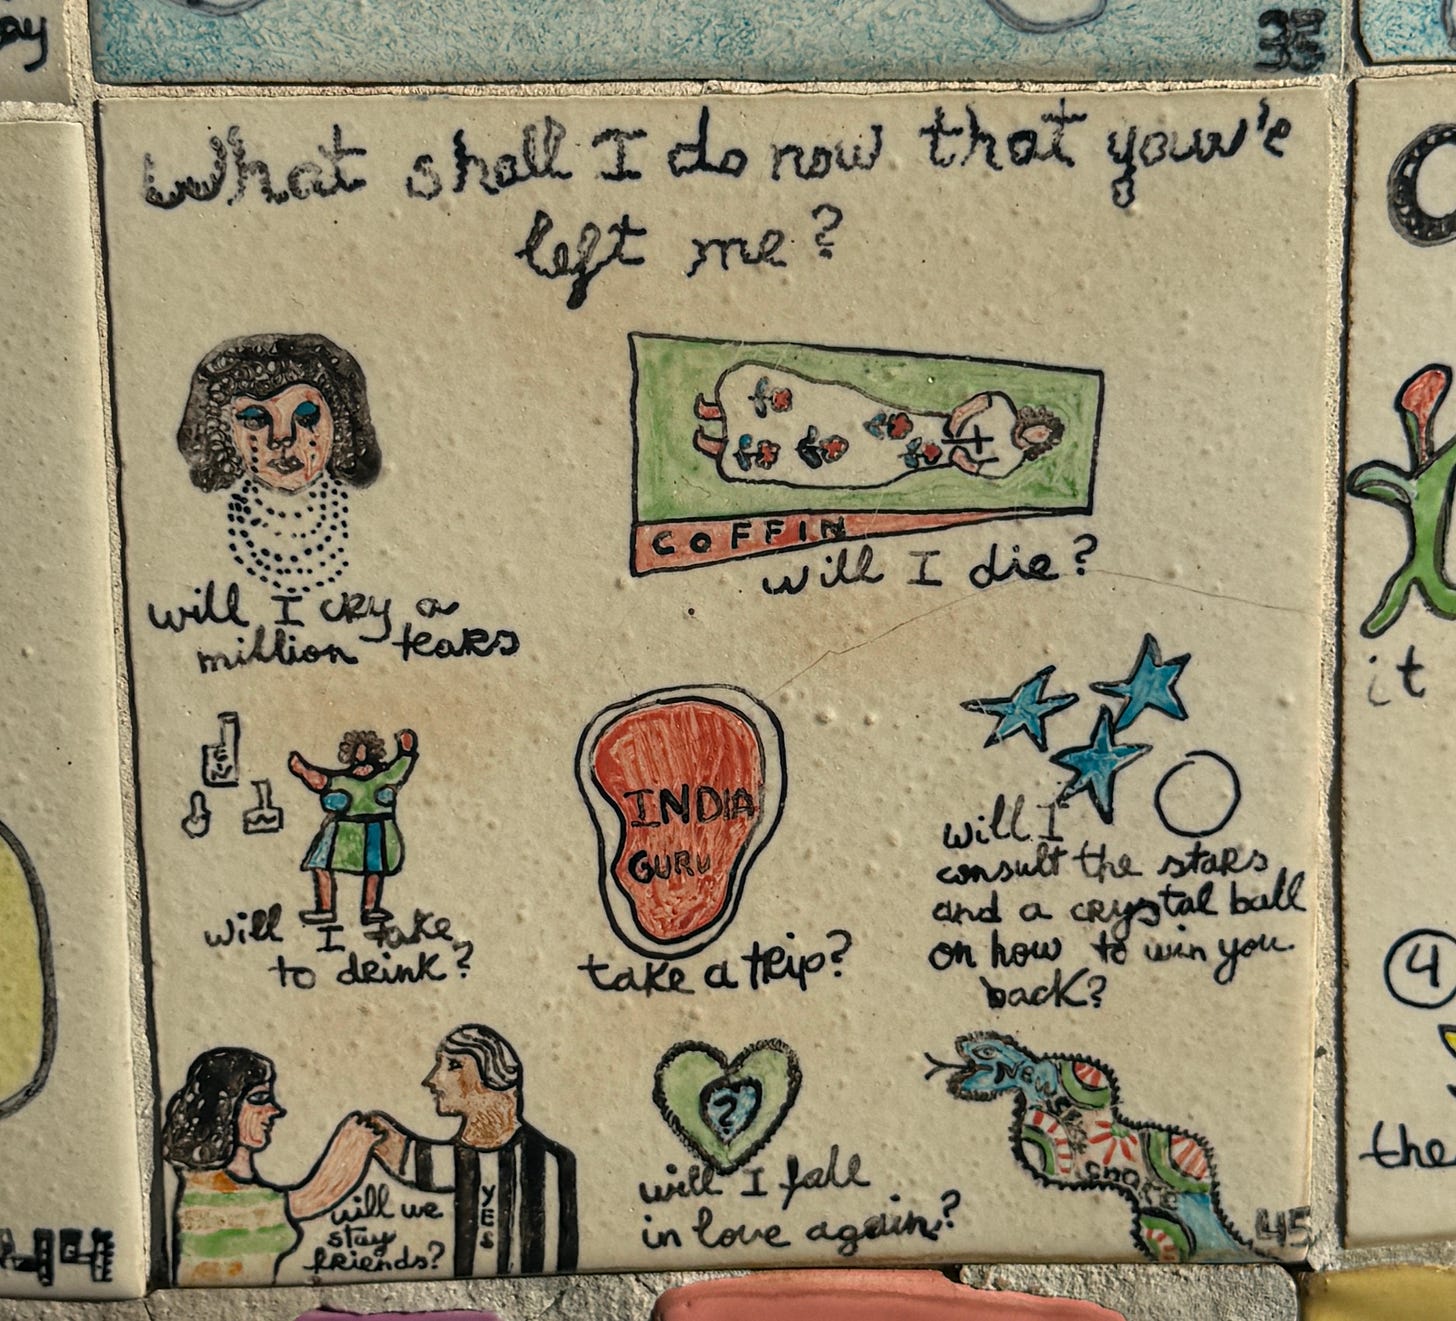 ay
35
What shall I do now that youv'e
left me?
COFFIN
will I cry a
million tears
will I die?
INDIA
GURU
will I take
to drink?
take a trip?
will I
consult the stars
and a crystal ball
on how to win you
back?
will we
stay
friends?
YES
will I fall
in love again?
NEW
44
45
it
4
the